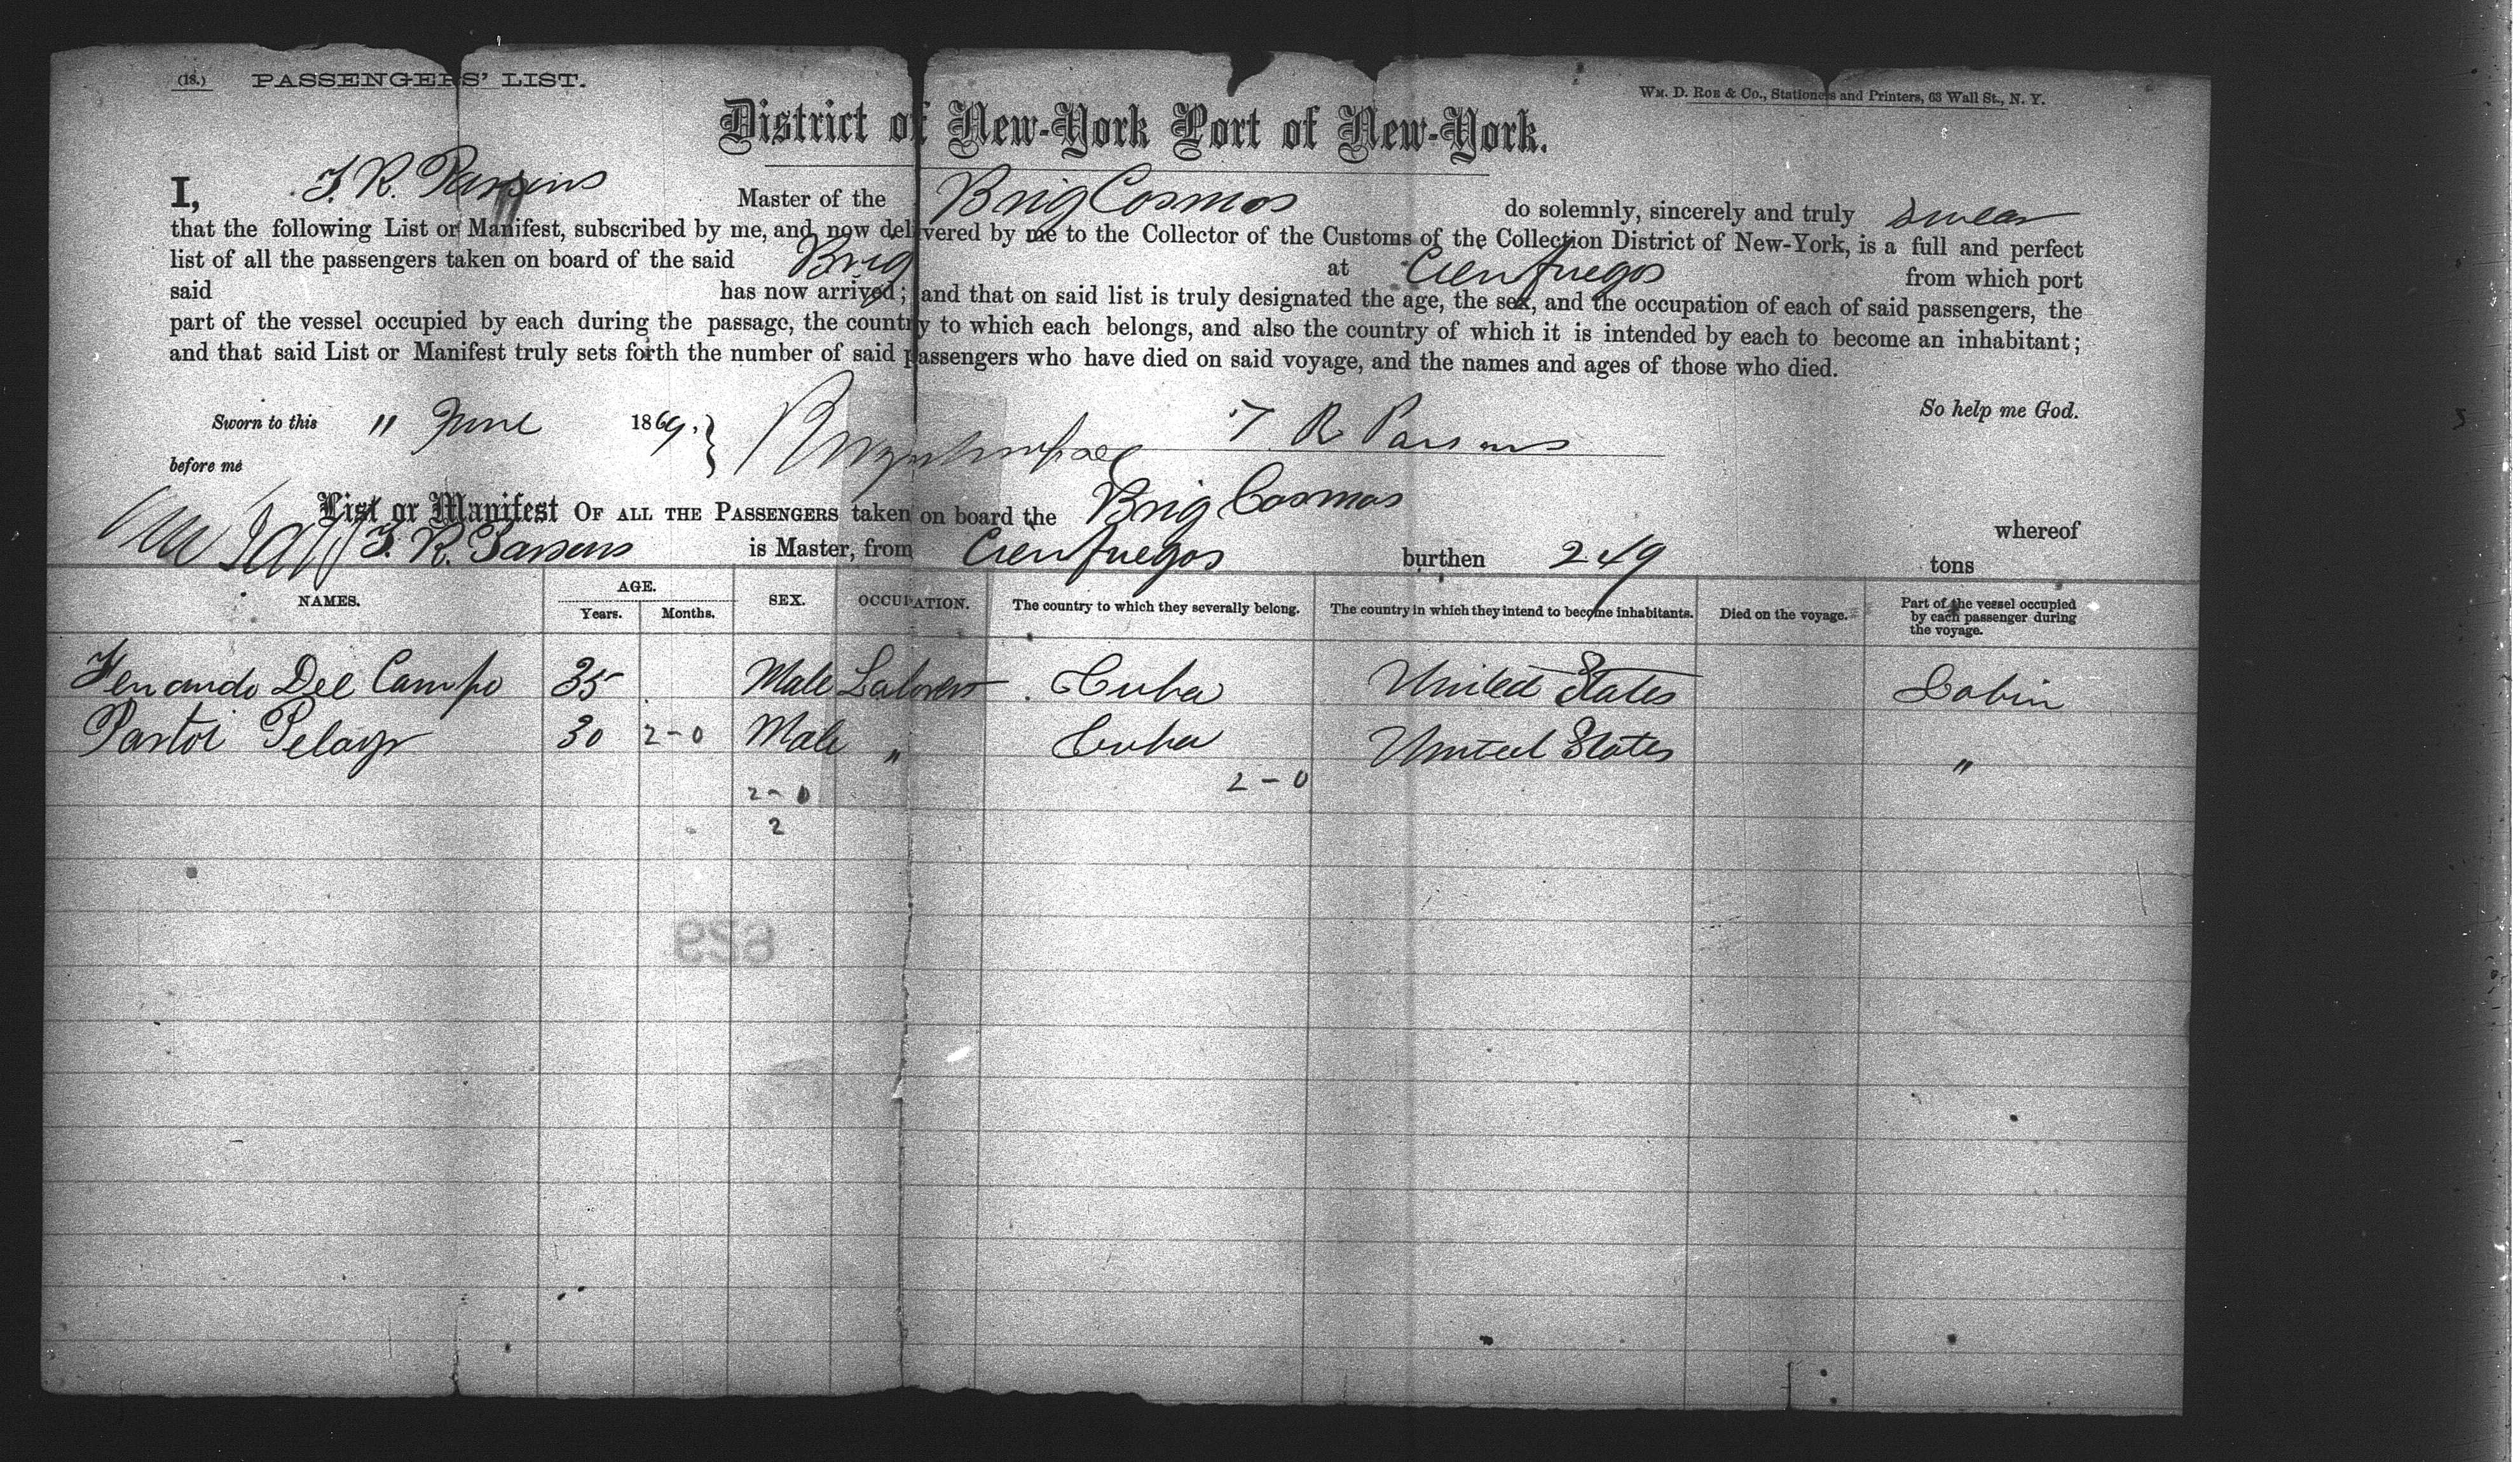 (18.) PASSENGERS' LIST.
WM. D. ROE & CO., Stationers and Printers, 63 Wall St., N. Y.
District of New-York Port of New-York.
I, T. R. Parsons Master of the Brig Cosmos do solemnly, sincerely and truly swear
that the following List or Manifest, subscribed by me, and now delivered by me to the Collector of the Customs of the Collection District of New-York, is a full and perfect
list of all the passengers taken on board of the said Brig at Cienfuegos from which port
said has now arrived; and that on said list is truly designated the age, the sex, and the occupation of each of said passengers, the
part of the vessel occupied by each during the passage, the country to which each belongs, and also the country of which it is intended by each to become an inhabitant;
and that said List or Manifest truly sets forth the number of said passengers who have died on said voyage, and the names and ages of those who died.
So help me God.
Sworn to this " June 1869. } T R Parsons
before me
List or Manifest OF ALL THE PASSENGERS taken on board the Brig Cosmos whereof
T. R. Parsons is Master, from Cienfuegos burthen 249 tons
NAMES. AGE. Years. Months. SEX. OCCUPATION. The country to which they severally belong. The country in which they intend to become inhabitants. Died on the voyage. Part of the vessel occupied by each passenger during the voyage.
Fernando Del Campo 35 Male Laborers Cuba United States Cabin
Pastor Pelayo 30 2-0 Male " Cuba United States "
2-0 2-0
2
629